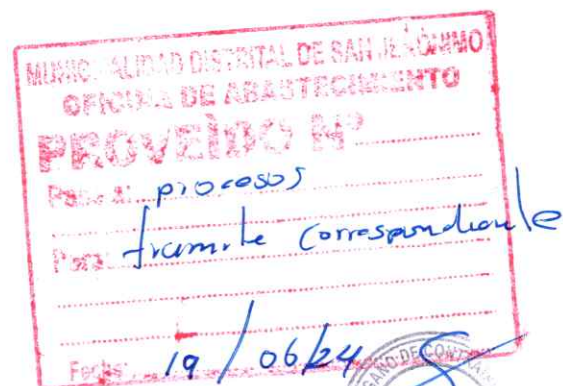 MUNICIPALIDAD DISTRITAL DE SAN JERÓNIMO
OFICINA DE ABASTECIMIENTO
PROVEÌDO Nº
Pase a: procesos
Para: tramite correspondiente
Fecha: 19/06/24
ÓRGANO DE CONTRA